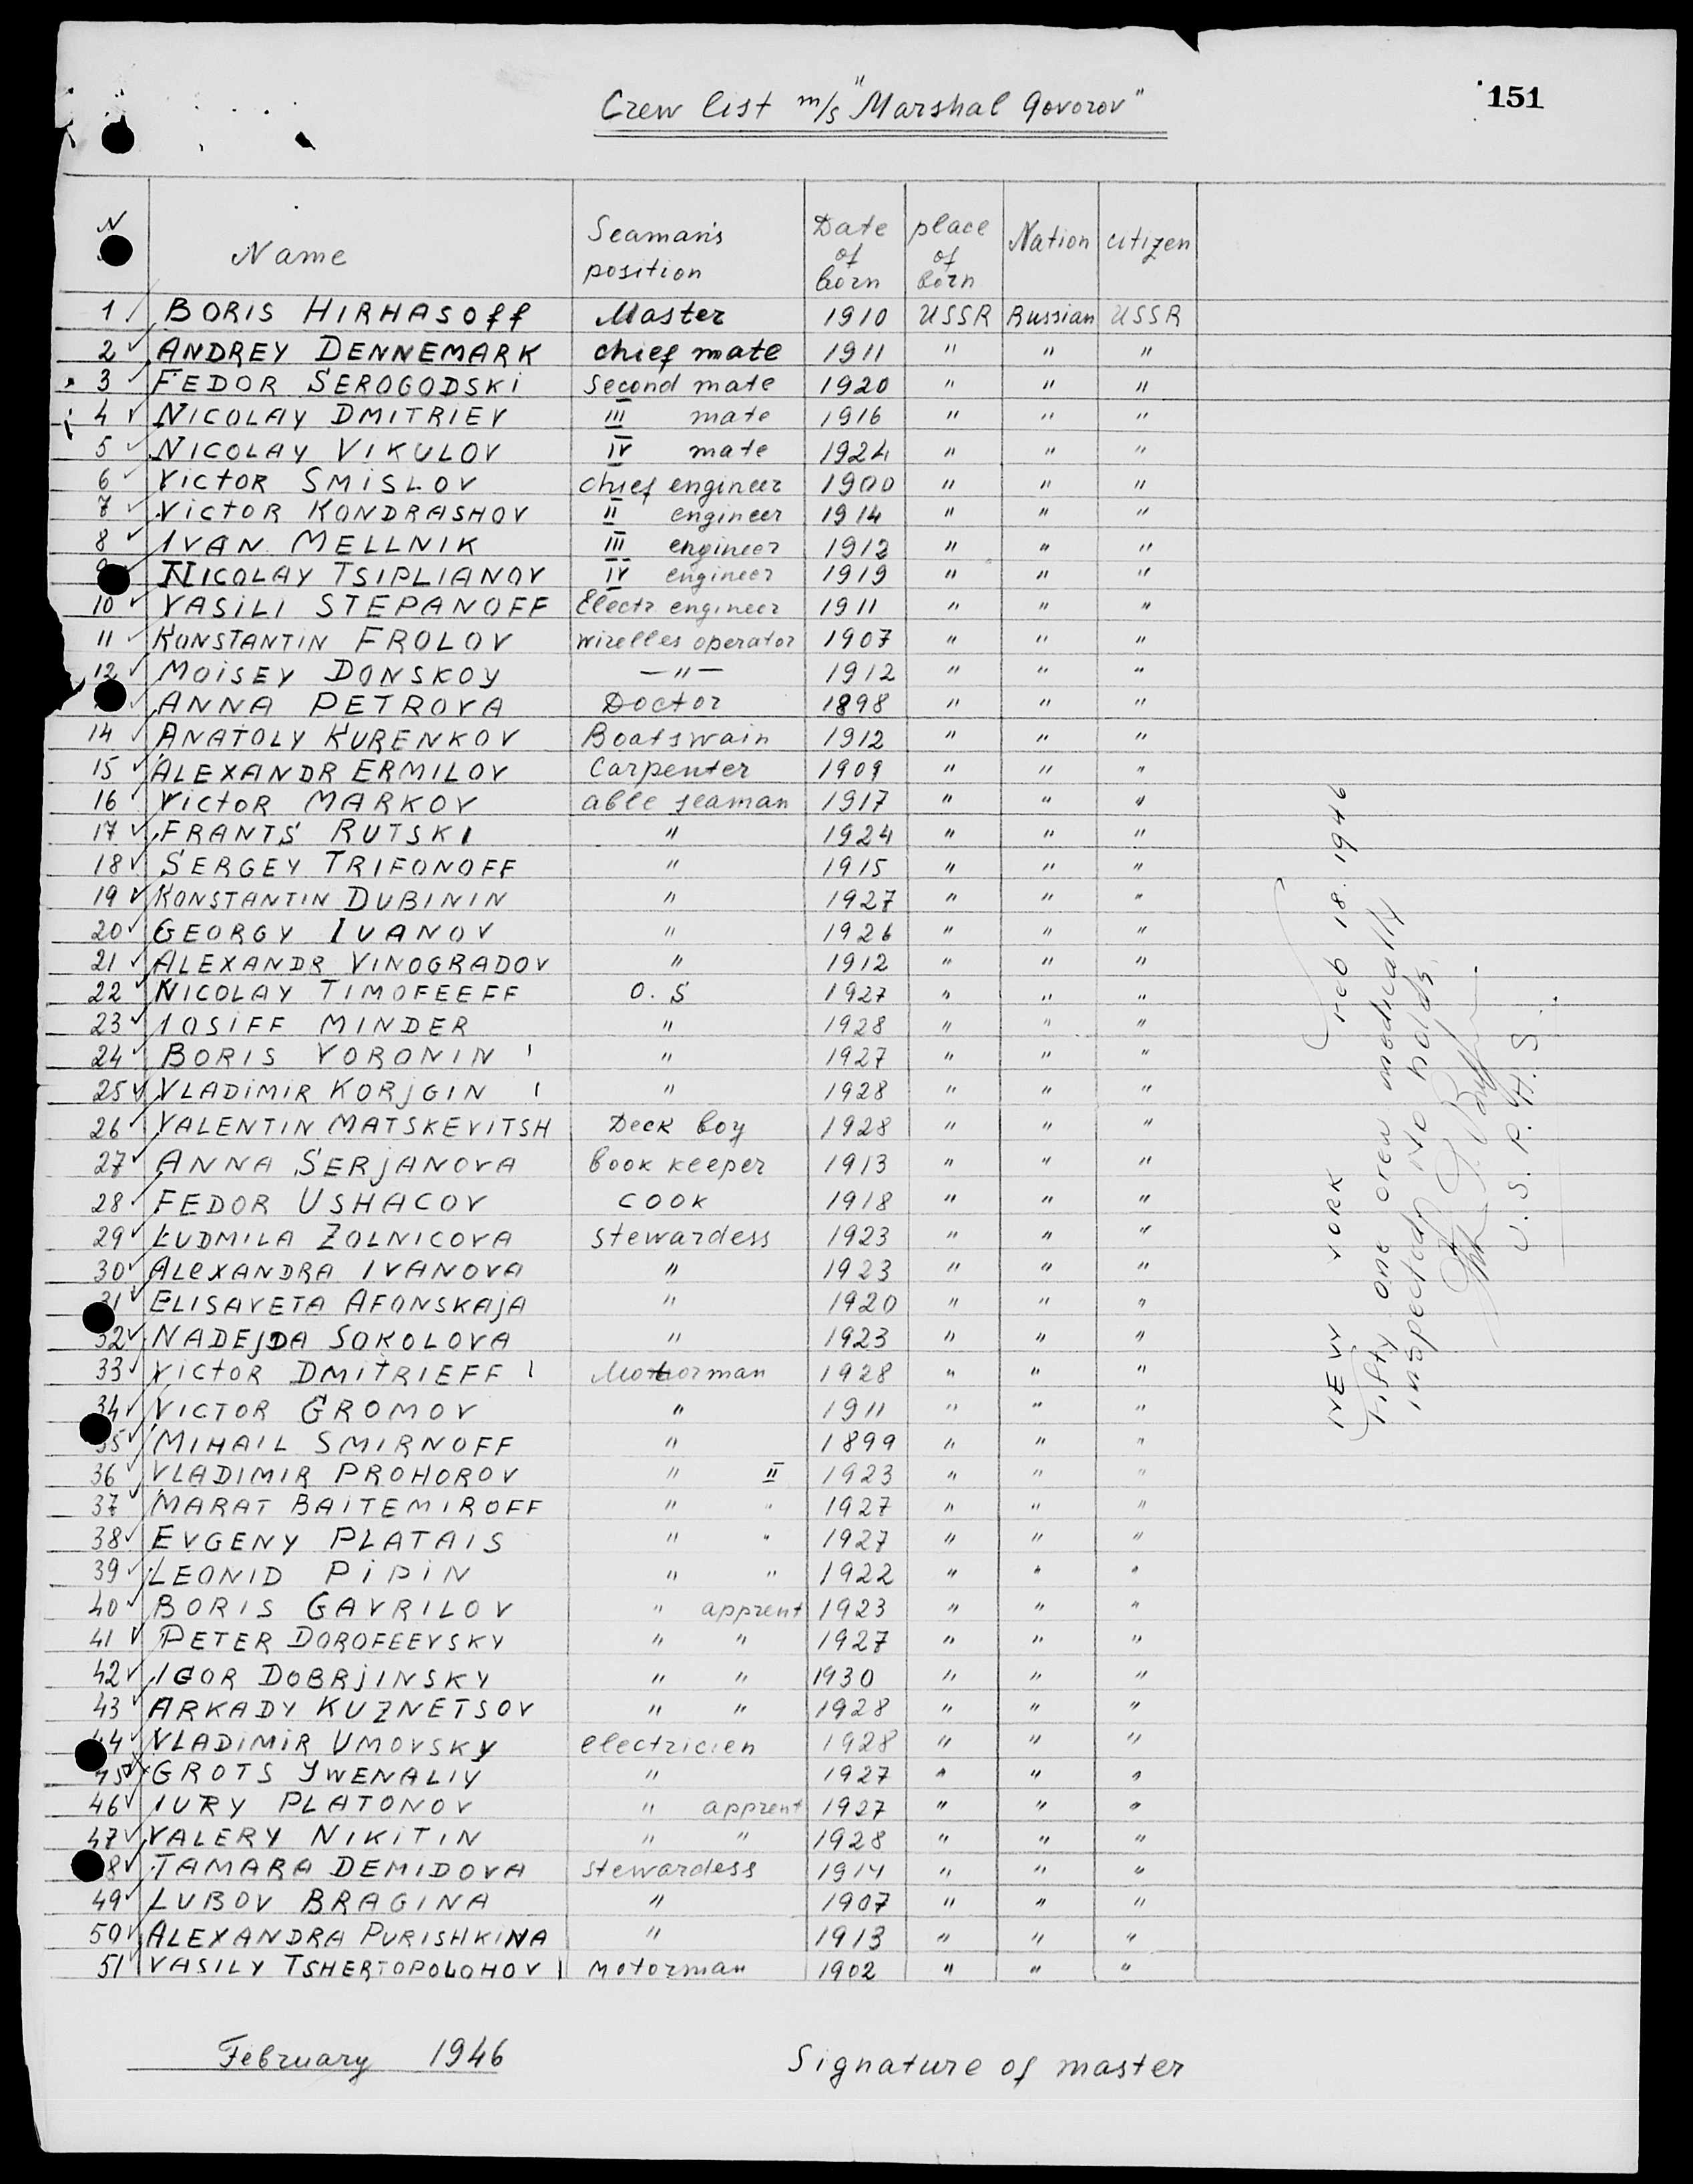 151
Crew list m/s "Marshal Govorov"
N Name Seaman's position Date of born place of born Nation citizen
1 BORIS HIRHASOff Master 1910 USSR Russian USSR
2 ANDREY DENNEMARK chief mate 1911 " " "
3 FEDOR SEROGODSKI Second mate 1920 " " "
4 NICOLAY DMITRIEV III mate 1916 " " "
5 NICOLAY VIKULOV IV mate 1924 " " "
6 VICTOR SMISLOV chief engineer 1900 " " "
7 VICTOR KONDRASHOV II engineer 1914 " " "
8 IVAN MELLNIK III engineer 1912 " " "
NICOLAY TSIPLIANOV IV engineer 1919 " " "
10 VASILI STEPANOFF Electr engineer 1911 " " "
11 KONSTANTIN FROLOV wirelles operator 1907 " " "
12 MOISEY DONSKOY —"— 1912 " " "
ANNA PETROVA Doctor 1898 " " "
14 ANATOLY KURENKOV Boatswain 1912 " " "
15 ALEXANDR ERMILOV Carpenter 1909 " " "
16 VICTOR MARKOV able seaman 1917 " " "
17 FRANTS RUTSKI " 1924 " " "
18 SERGEY TRIFONOFF " 1915 " " "
19 KONSTANTIN DUBININ " 1927 " " "
20 GEORGY IVANOV " 1926 " " "
21 ALEXANDR VINOGRADOV " 1912 " " "
22 NICOLAY TIMOFEEFF O. S 1927 " " "
23 IOSIFF MINDER " 1928 " " "
24 BORIS VORONIN " 1927 " " "
25 VLADIMIR KORJGIN " 1928 " " "
26 VALENTIN MATSKEVITSH Deck boy 1928 " " "
27 ANNA SERJANOVA book keeper 1913 " " "
28 FEDOR USHACOV COOK 1918 " " "
29 LUDMILA ZOLNICOVA stewardess 1923 " " "
30 ALEXANDRA IVANOVA " 1923 " " "
31 ELISAVETA AFONSKAJA " 1920 " " "
32 NADEJDA SOKOLOVA " 1923 " " "
33 VICTOR DMITRIEFF Motorman 1928 " " "
34 VICTOR GROMOV " 1911 " " "
35 MIHAIL SMIRNOFF " 1899 " " "
36 VLADIMIR PROHOROV " II 1923 " " "
37 MARAT BAITEMIROFF " " 1927 " " "
38 EVGENY PLATAIS " " 1927 " " "
39 LEONID PIPIN " " 1922 " " "
40 BORIS GAVRILOV " apprent 1923 " " "
41 PETER DOROFEEVSKY " " 1927 " " "
42 IGOR DOBRJINSKY " " 1930 " " "
43 ARKADY KUZNETSOV " " 1928 " " "
44 VLADIMIR UMOVSKY electricien 1928 " " "
45 GROTS YWENALIY " 1927 " " "
46 IURY PLATONOV " apprent 1927 " " "
47 VALERY NIKITIN " " 1928 " " "
8 TAMARA DEMIDOVA stewardess 1914 " " "
49 LUBOV BRAGINA " 1907 " " "
50 ALEXANDRA PURISHKINA " 1913 " " "
51 VASILY TSHERTOPOLOHOV motorman 1902 " " "
NEW YORK Feb 18. 1946
Fifty one crew medically
inspected, No holds.
U. S. P. H. S.
February 1946
Signature of master